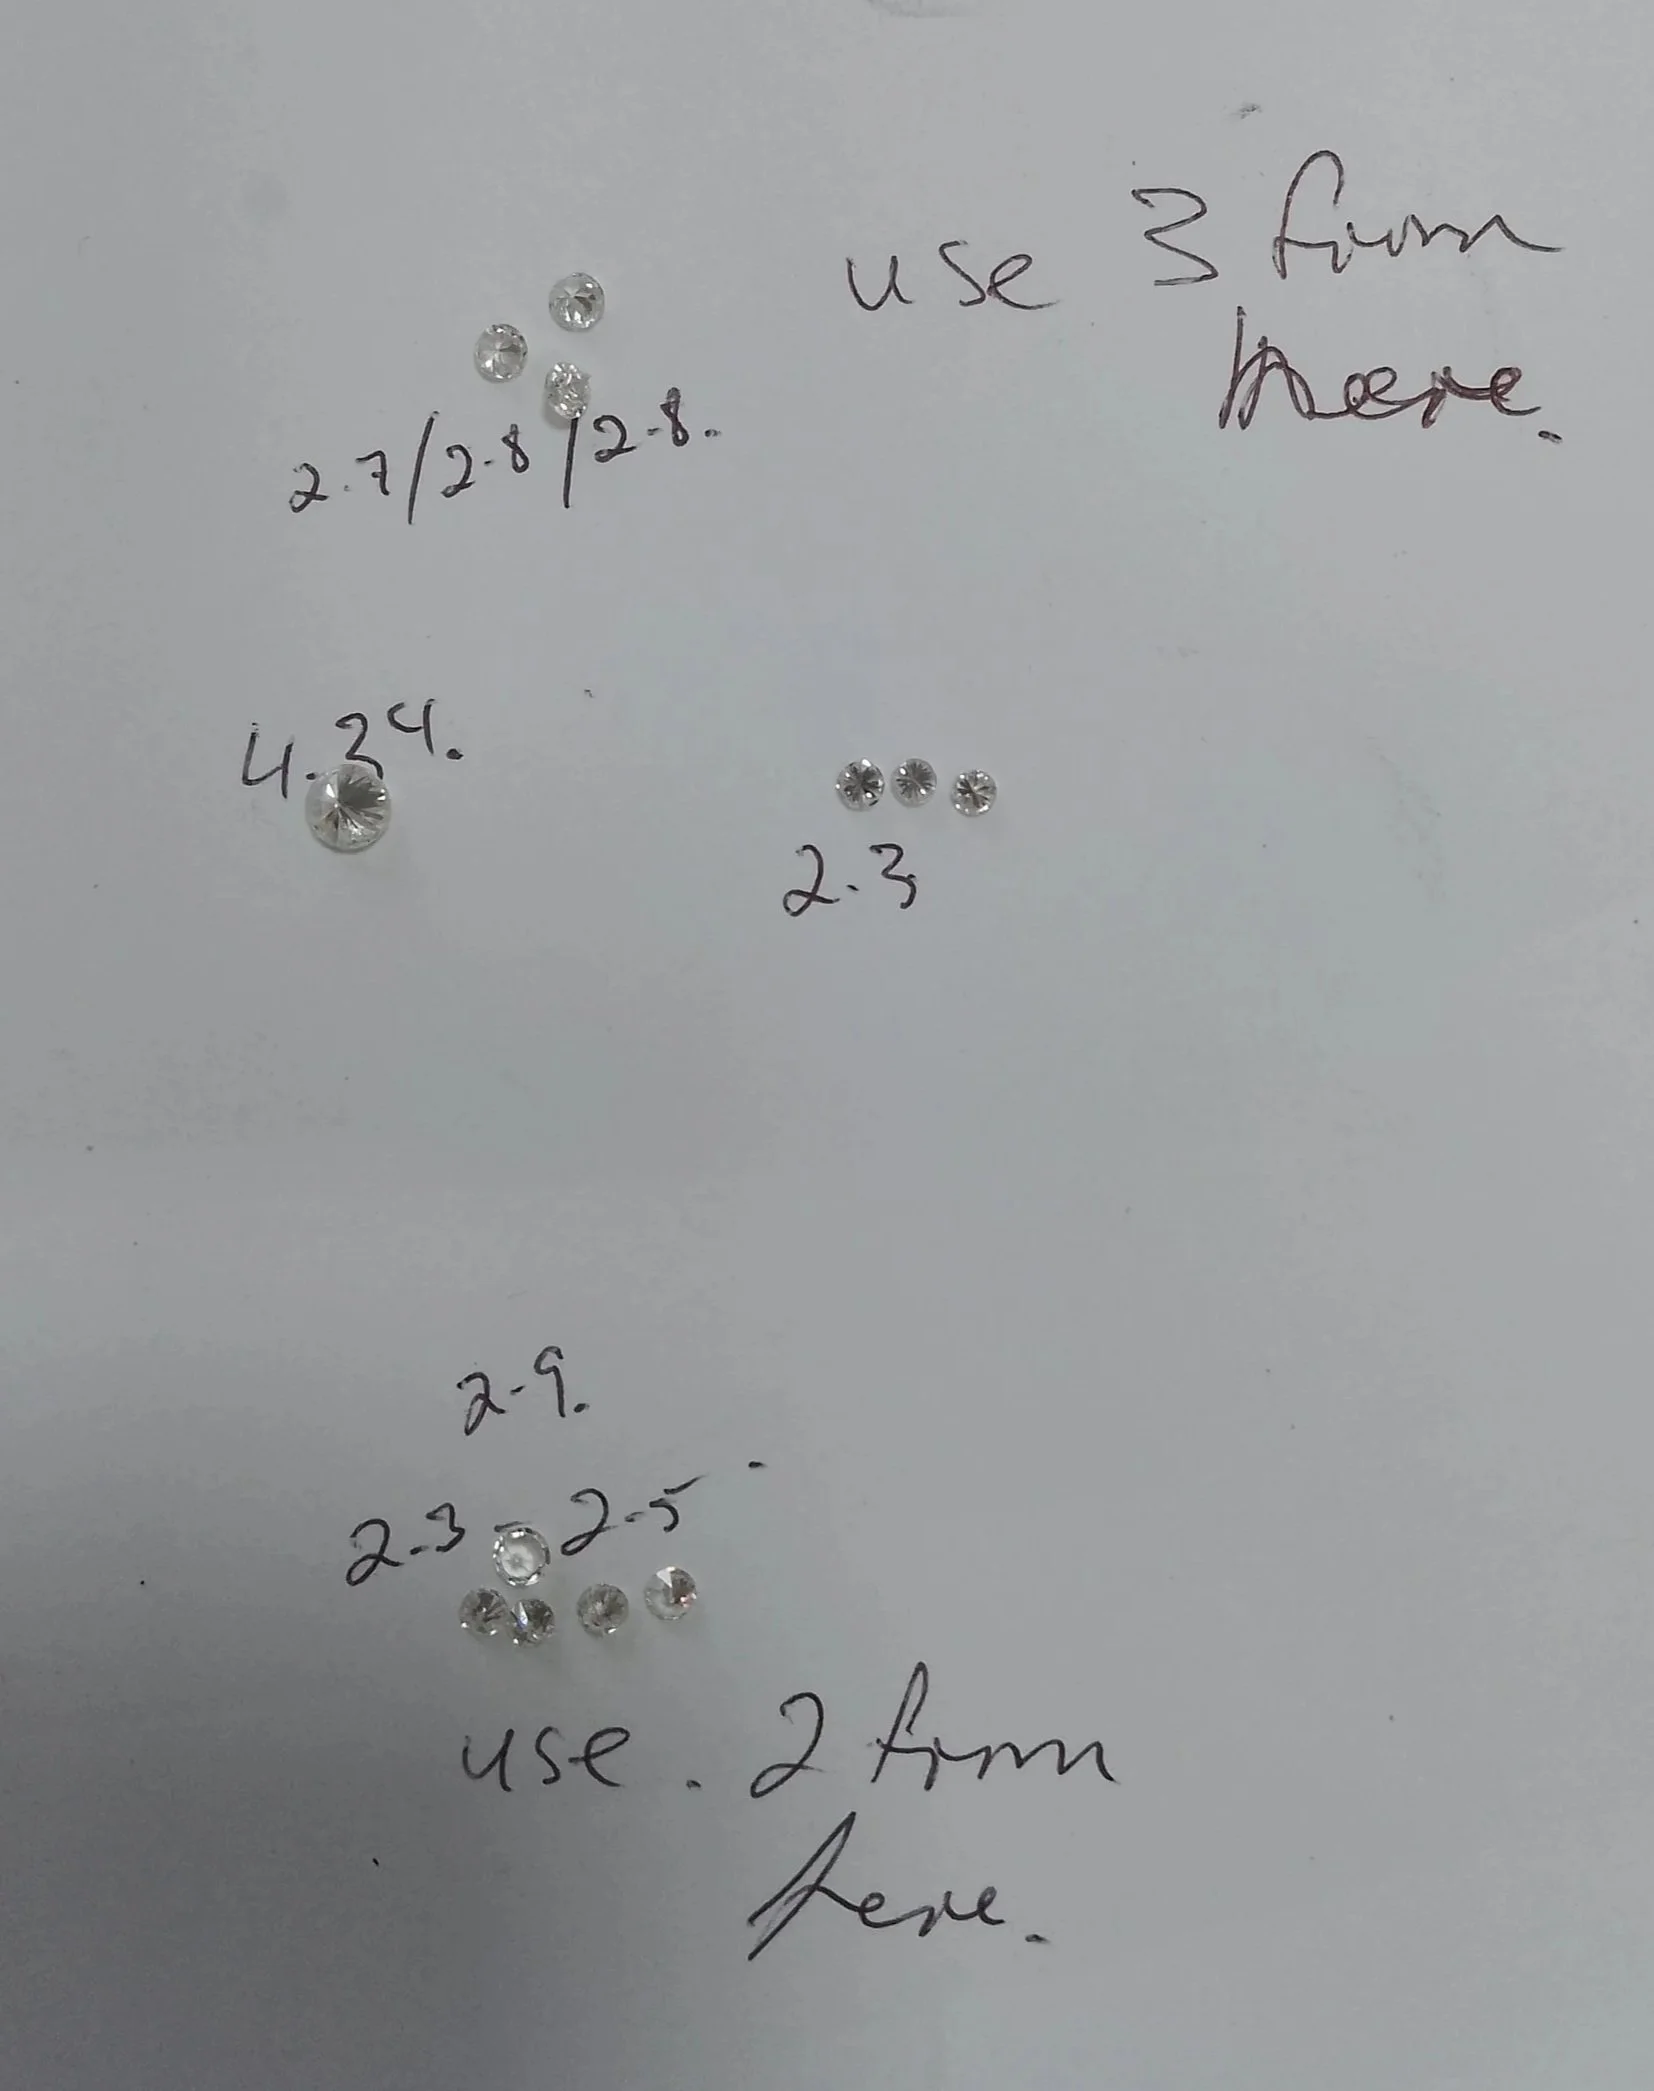 use 3 from
here.
2.7/2.8/2.8.
4.34.
2.3
2.9.
2.3 - 2.5
use. 2 from
here.